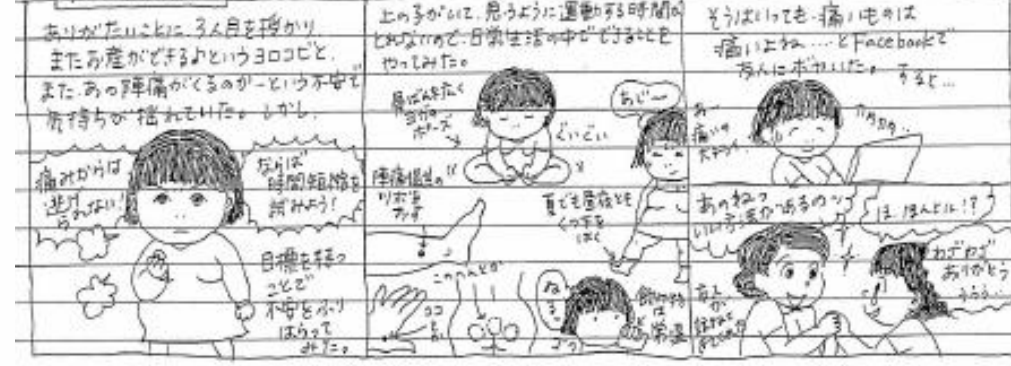 ありがたいことに、3人目を授かり
またお産ができる♪というヨロコビと、
また、あの陣痛がくるのかーという不安で
気持ちが揺れていた。しかし、
痛みからは
逃げ
られない!
ならば
時間短縮を
試みよう!
目標を持つ
ことで
不安をふり
はらって
みた。
上の子がいて、思うように運動する時間が
とれないので、日常生活の中でできることを
やってみた。
肩ばんを広く
ヨガの
ポーズ
ぐいぐい
あじ〜
陣痛促進の
ツボを
おす
夏でも昼夜とも
くつ下を
はく
このへんとか
ココ
ぬる
飲みものは
常温
そうはいっても、痛いものは
痛いよね....とFacebookで
友人にボヤいた。
すると...
あー
痛いの
カタカタ..
あのねっ
いい方法があるのっ
ほ、ほんとに!?
わざわざ
ありがとう
ううう..